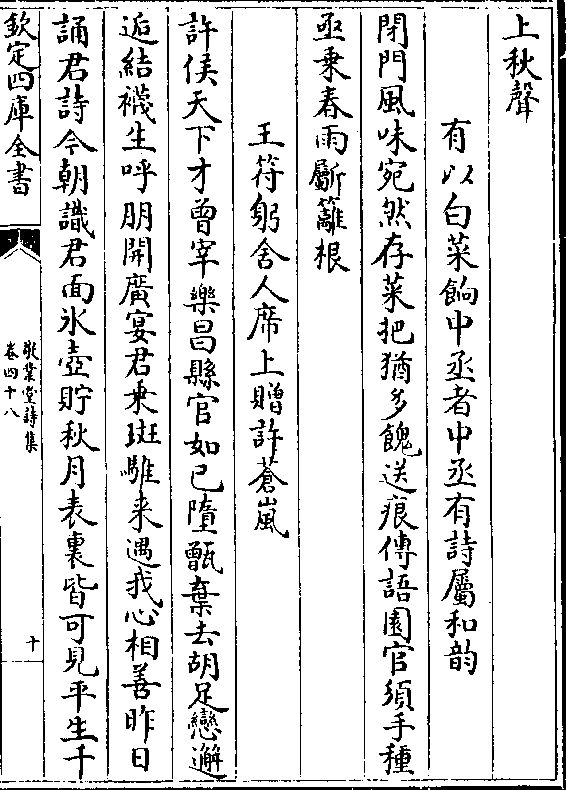 上秋聲
有以白菜餉中丞者中丞有詩屬和韵
閉門風味宛然存菜把猶多餽送痕傳語園官須手種
亟乗春雨斸籬根
王符躬舍人席上贈許蒼嵐
許侯天下才曾宰樂昌縣官如已墮甑棄去胡足戀邂
逅結襪生呼朋開廣宴君乗斑騅来遇我心相善昨日
誦君詩今朝識君面氷壺貯秋月表裏皆可見平生千
欽定四庫全書
敬業堂詩集
卷四十八
十